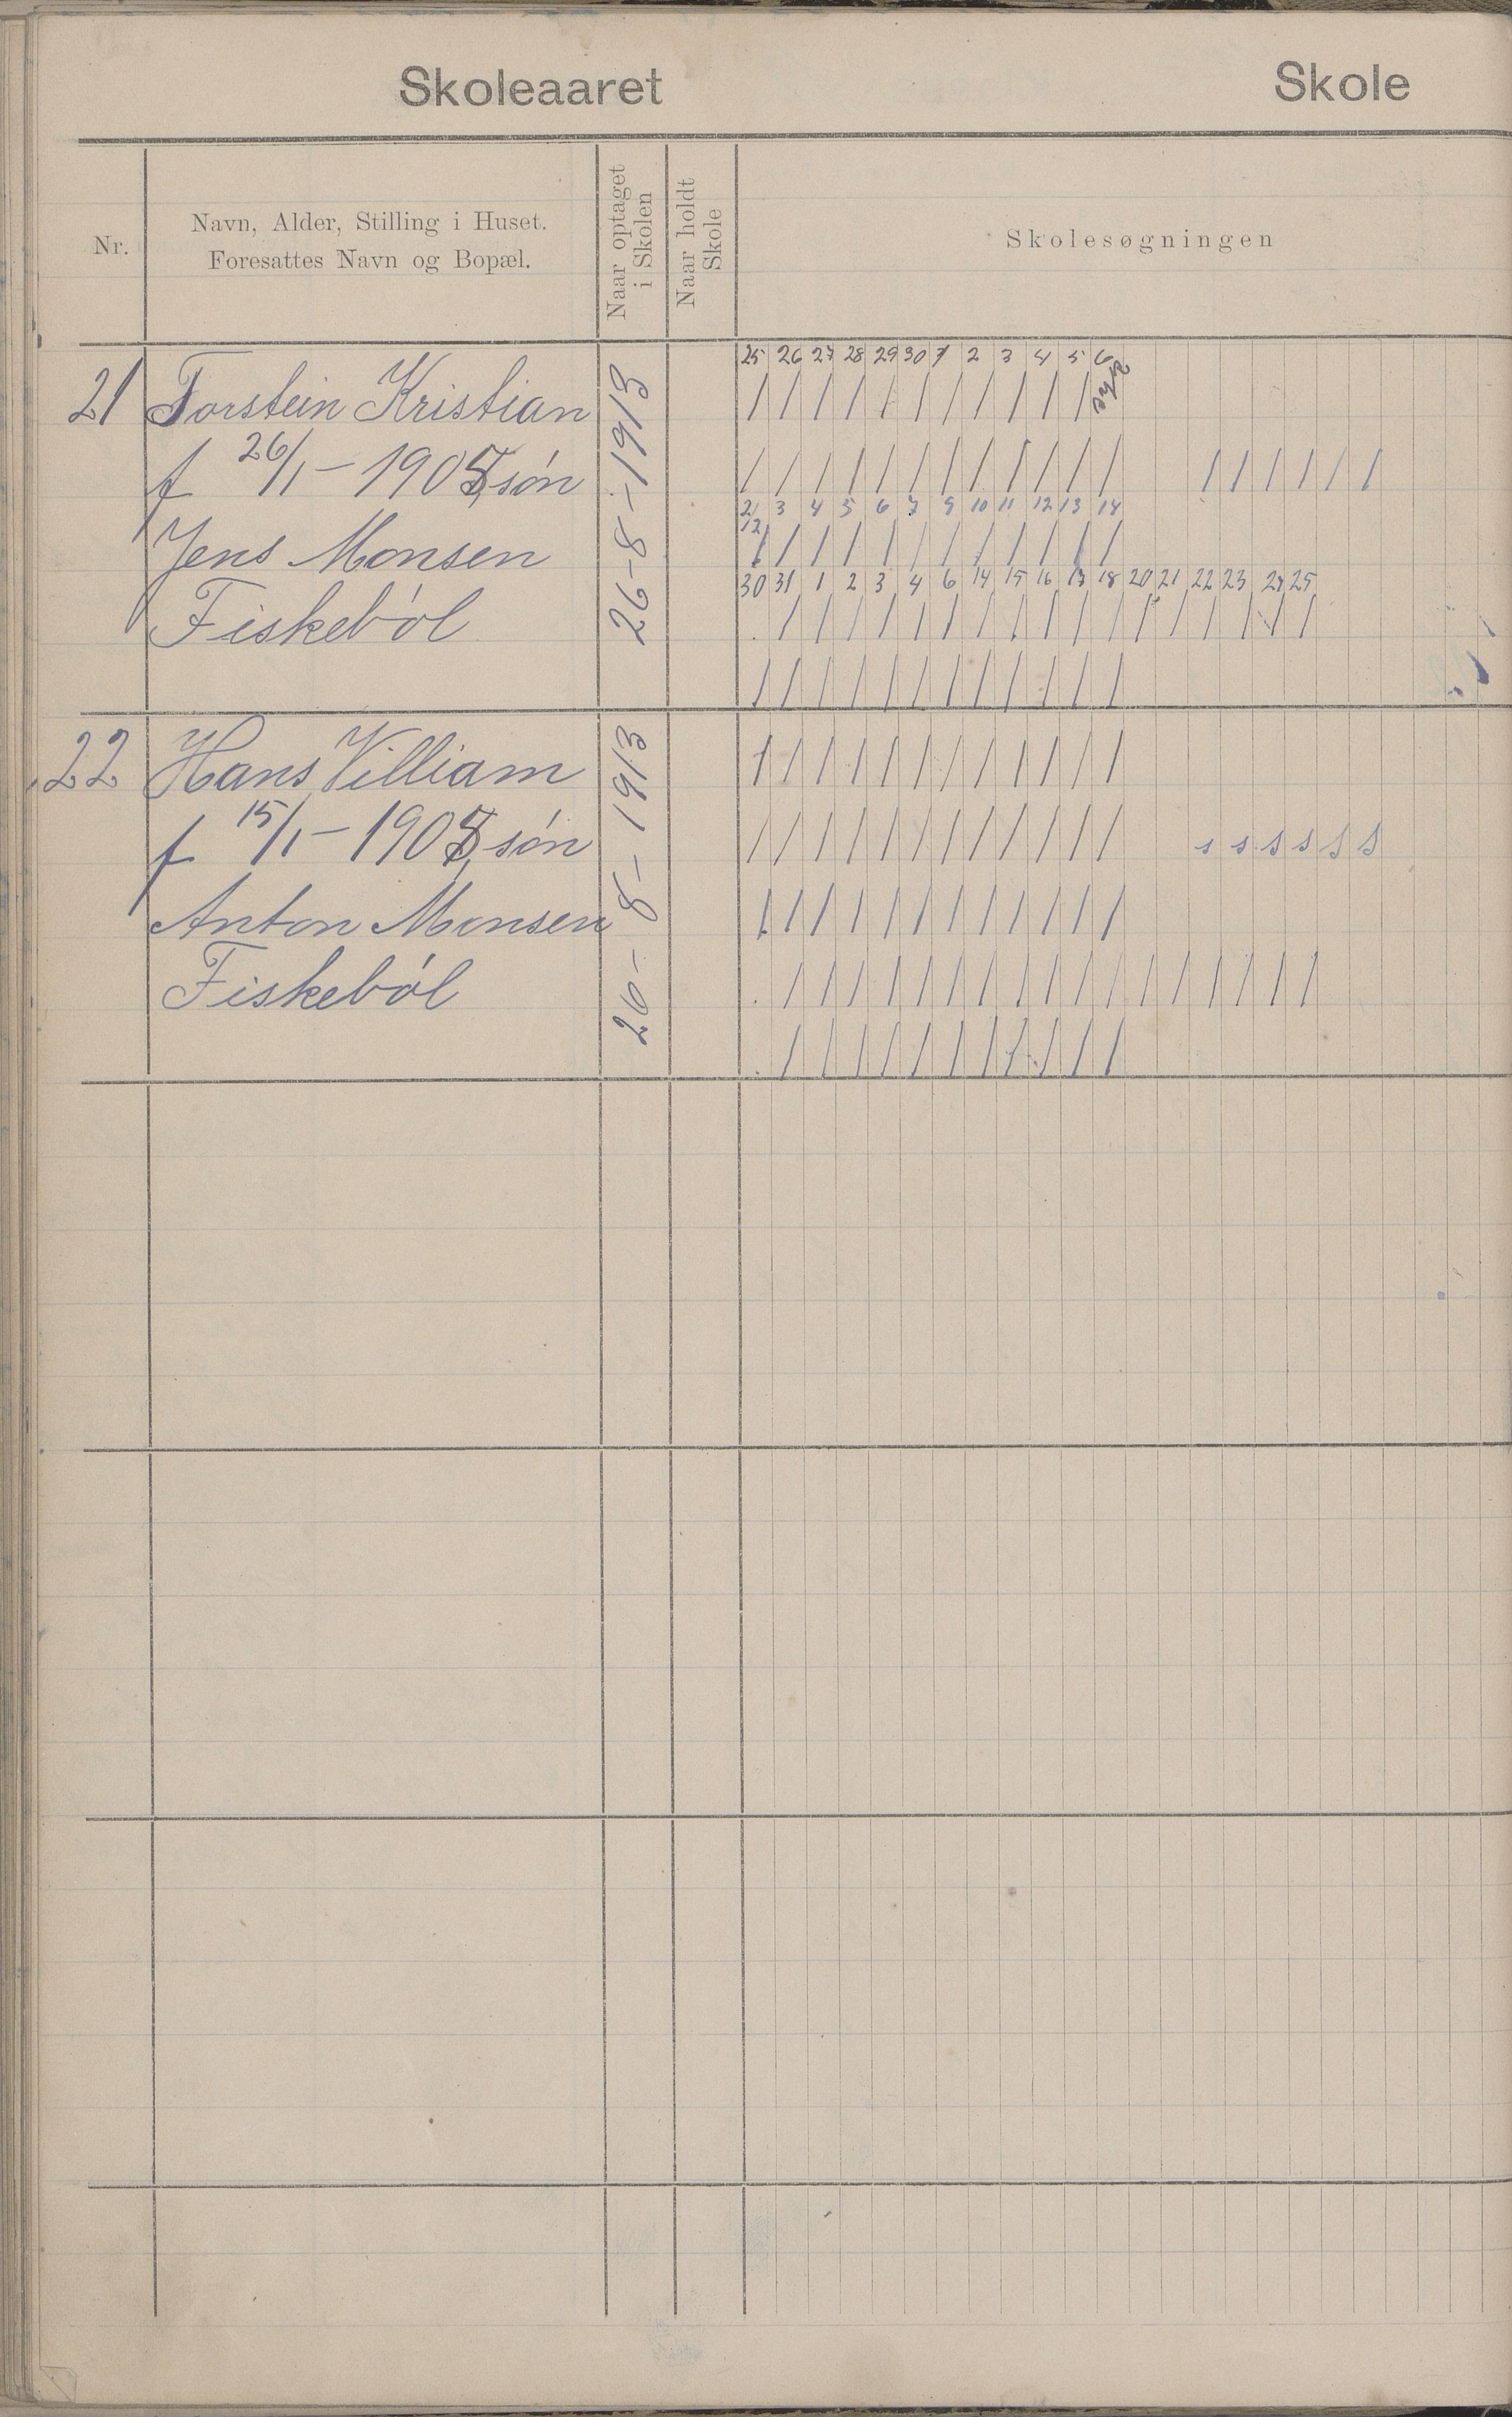 Skoleaaret Skole
Nr.
Navn, Alder, Stilling i Huset.
Foresattes Navn og Bopæl.
Naar optaget
i Skolen
Naar holdt
Skole
Skolesøgningen
25 26 27 28 29 30 1 2 3 4 5 6
21 Torstein Kristian
26-8-1913
/ / / / / / / / / / /
f 26/1-1905, søn
/ / / / / / / / / / / / / / / / / /
2/12 3 4 5 6 7 9 10 11 12 13 14
Jens Monsen
/ / / / / / / / / / / /
30 31 1 2 3 4 6 14 15 16 17 18 20 21 22 23 24 25
Fiskebøl
. / / / / / / / / / / / / / / / / /
/ / / / / / / / / / / /
22 Hans Villiam
26-8-1913
/ / / / / / / / / / / /
f 15/1-1905, søn
/ / / / / / / / / / / / s s s s s s
Anton Monsen
/ / / / / / / / / / / /
Fiskebøl
. / / / / / / / / / / / / / / / / /
. / / / / / / / / / / /